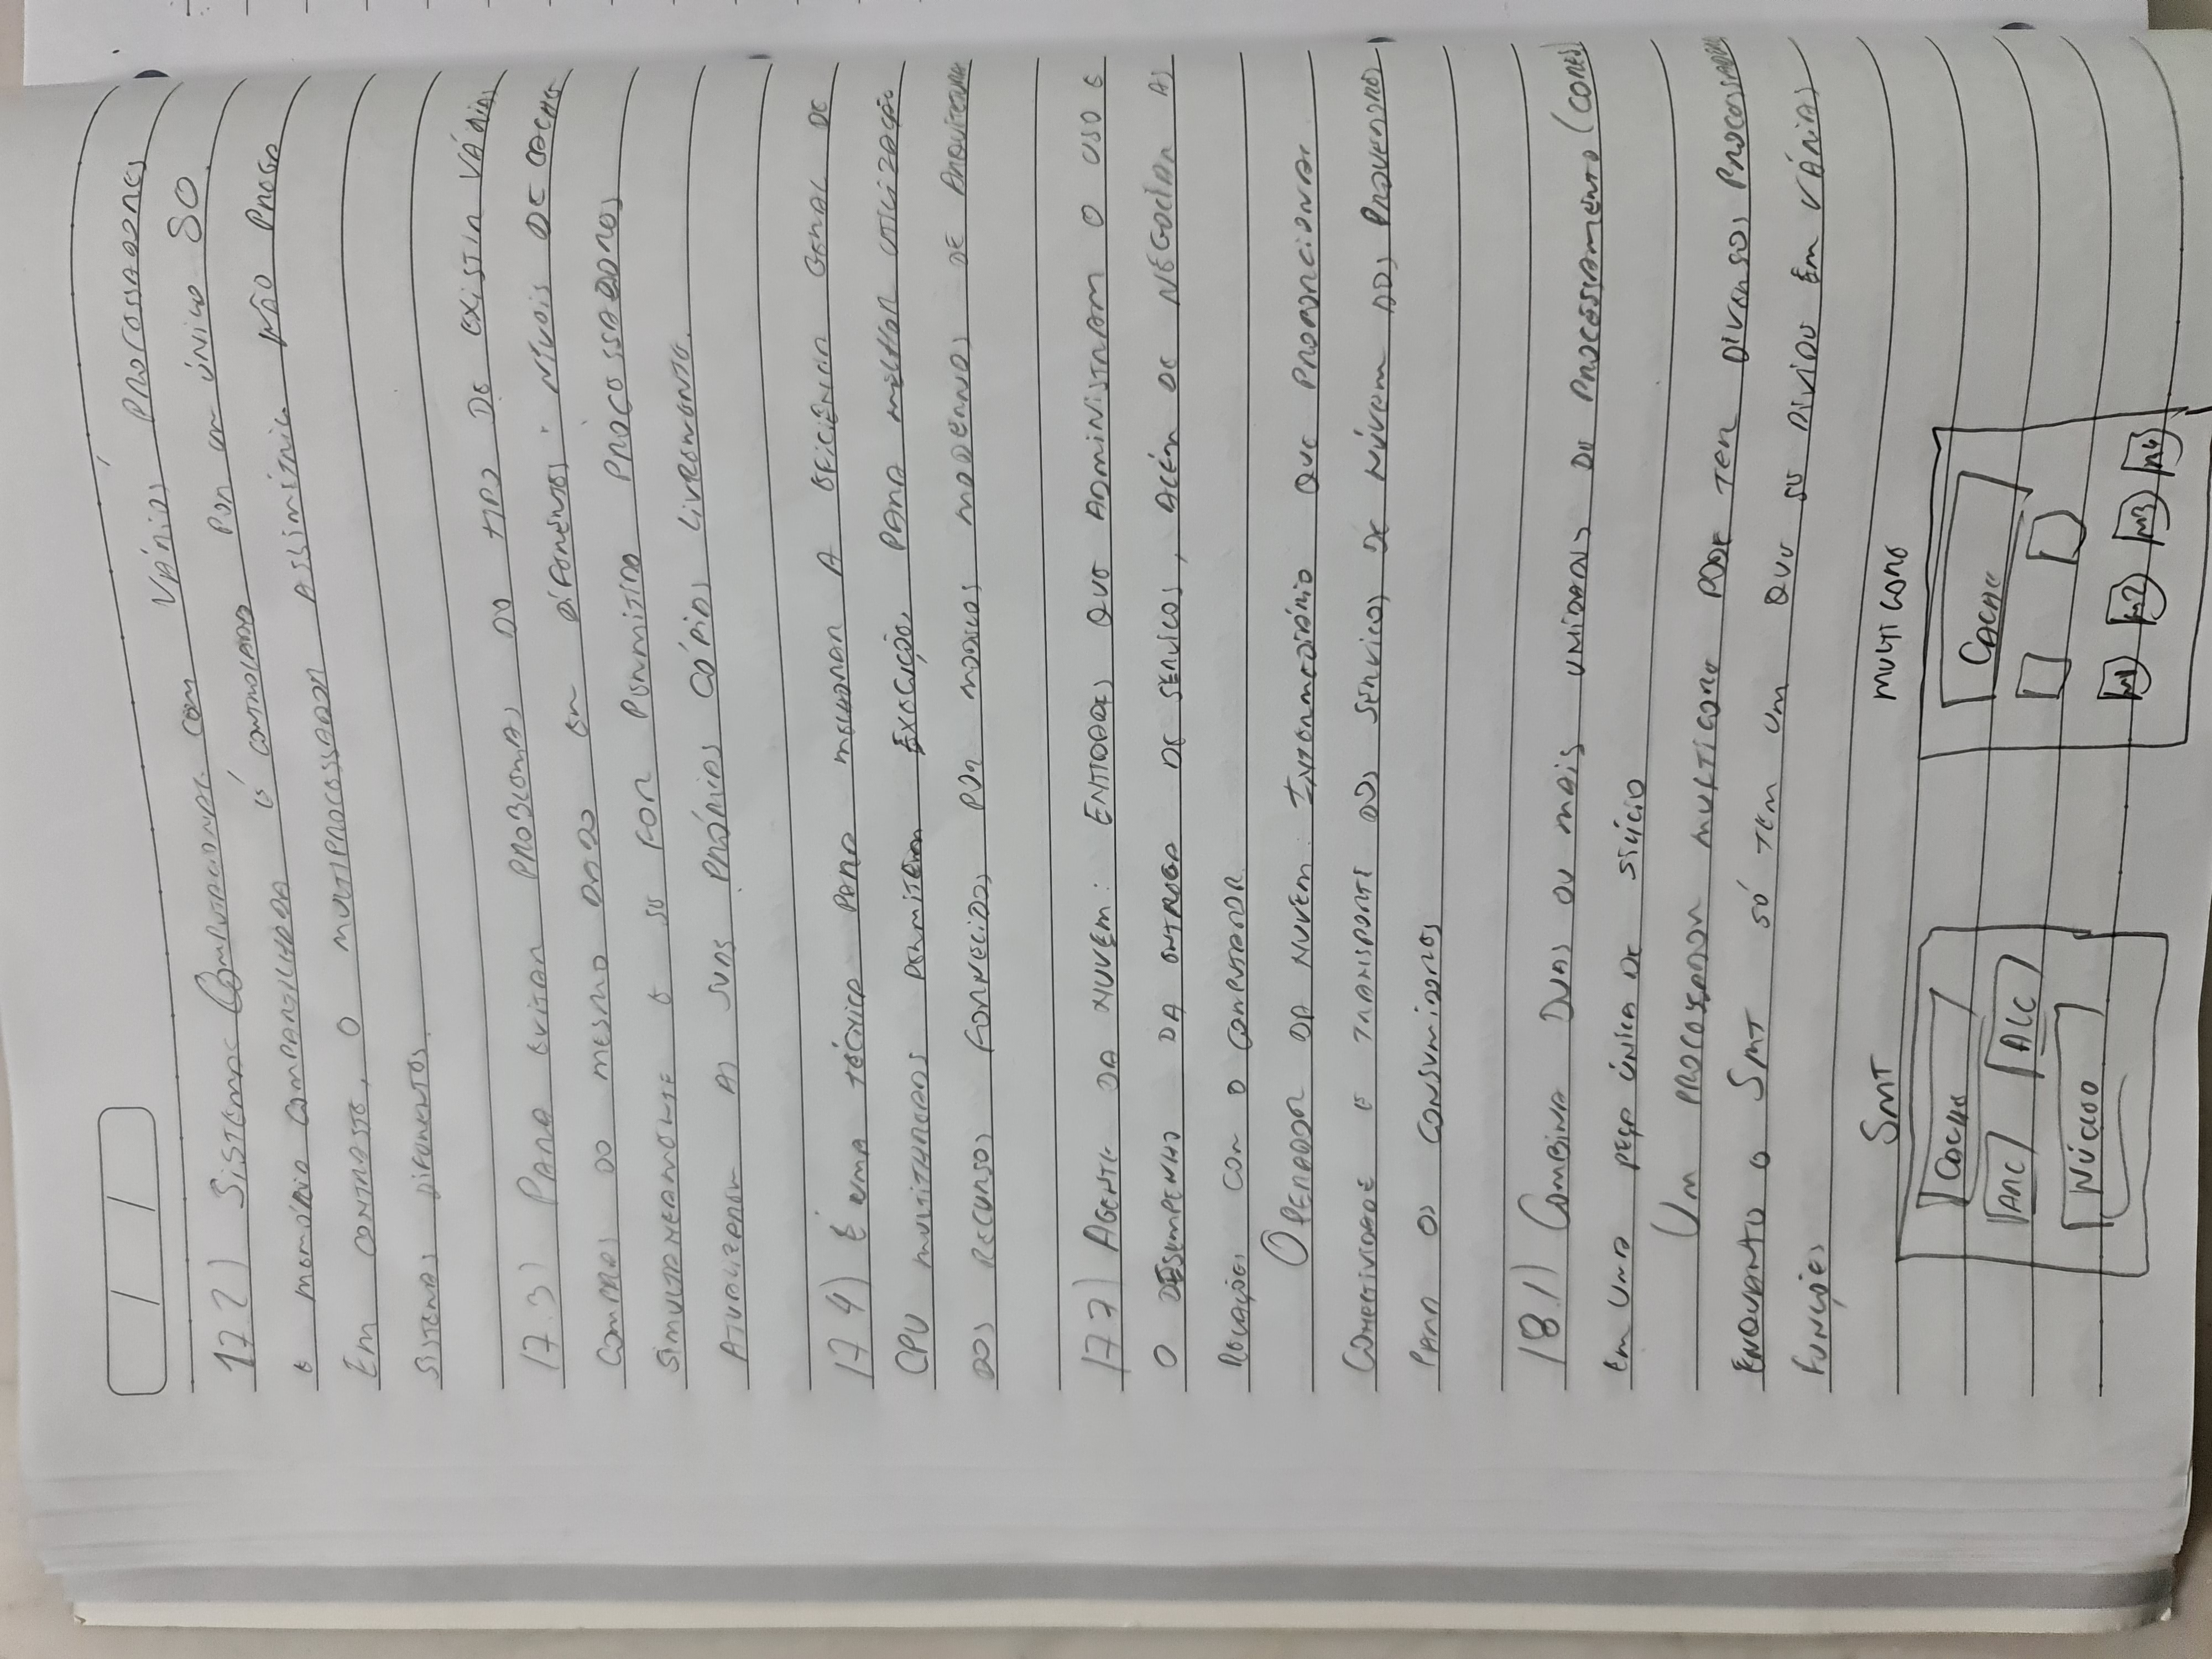 17.2) SISTEMAS COMPUTACIONAL COM VÁRIOS PROCESSADORES
E MEMÓRIA COMPARTILHADA É CONTROLADO POR UM ÚNICO SO.
EM CONTRASTE, O MULTIPROCESSADOR ASSIMÉTRICO NÃO PREGA
SISTEMAS DIFERENTES.
17.3) PARA EVITAR PROBLEMAS DO TIPO DE EXISTIR VÁRIAS
DO MESMO DADO EM DIFERENTES NÍVEIS DE CACHE
SIMULTANEAMENTE E SE FOR PERMITIDO PROCESSADORES
ATUALIZAREM AS SUAS PRÓPRIAS CÓPIAS LIVREMENTE.
17.4) É UMA TÉCNICA PARA MELHORAR A EFICIÊNCIA GERAL DE
CPU MULTITHREADS PERMITEM EXECUÇÕES PARA MELHOR UTILIZAÇÃO
DOS RECURSOS FORNECIDOS POR MODELOS MODERNOS DE ARQUITETURA
17.7) AGENTE DA NUVEM: ENTIDADES QUE ADMINISTRAM O USO E
O DESEMPENHO DA ENTREGA DE SERVICOS, ALÉM DE NEGOCIAR AS
RELAÇÕES COM O COMPUTADOR.
OPERADOR DA NUVEM: INTERMEDIÁRIO QUE PROPORCIONA
CONECTIVIDADE E TRANSPORTE DOS SERVICOS DE NÚVEM DOS PROVEDORES
PARA OS CONSUMIDORES
18.1) COMBINA DUAS OU MAIS UNIDADES DE PROCESSAMENTO (CORES)
EM UMA PEÇA ÚNICA DE SILÍCIO
UM PROCESSADOR MULTICORE PODE TER DIVERSOS PROCESSADORES
ENQUANTO O SMT SÓ TEM UM QUE SE DIVIDE EM VÁRIAS
FUNÇÕES
SMT MULTICORE
CACHE CACHE
ARC
NÚCLEO N1 N2 N3 N4